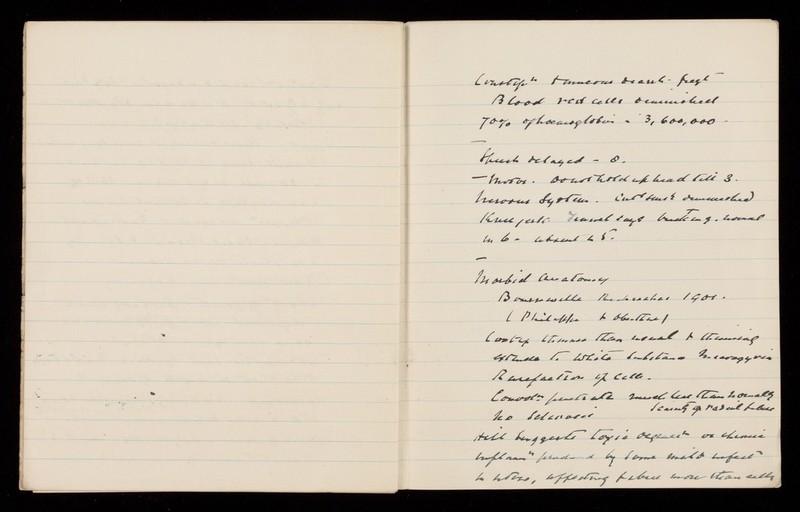 Constipn
Blood red cells diminished
70% of haemoglobin = 3,600,000 -
Speech delayed - 8.
- Motor. Do not hold up head till 3.
Nervous System. Cuts sens. diminished
Knee jerk. says normal
in 6 - absent in 5.
Morbid Anatomy
Bourneville Recherches
(Philippe & Oberthur)
Cortex thinner than usual & thinning
extends to white substance
Rarefaction of cells.
Convolns penetrate much less than normally
No Sclerosis Scanty of radial fibres
Hill suggests toxic or chronic
inflamn produced by some mild infectn
in utero, affecting fibres more than cells